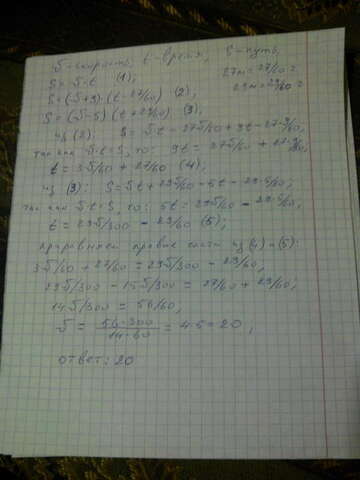 V-скорость, t-время, S-путь,
S=V·t (1), 27м=27/60 ч
S=(V+9)·(t-27/60) (2), 29м=29/60 ч
S=(V-5)(t+29/60) (3),
из (2): S=V·t-27V/60+9t-27·9/60,
так как V·t=S, то: 9t=27V/60+27·9/60,
t=3V/60+27/60 (4),
из (3): S=Vt+29V/60-5t-29·5/60,
так как V·t=S, то: 5t=29V/60-29·5/60,
t=29V/300-29/60 (5),
приравняем правые части из (4) и (5):
3V/60+27/60=29V/300-29/60,
29V/300-15V/300=27/60+29/60;
14V/300=56/60,
V=56·300/14·60=4·5=20,
ответ: 20